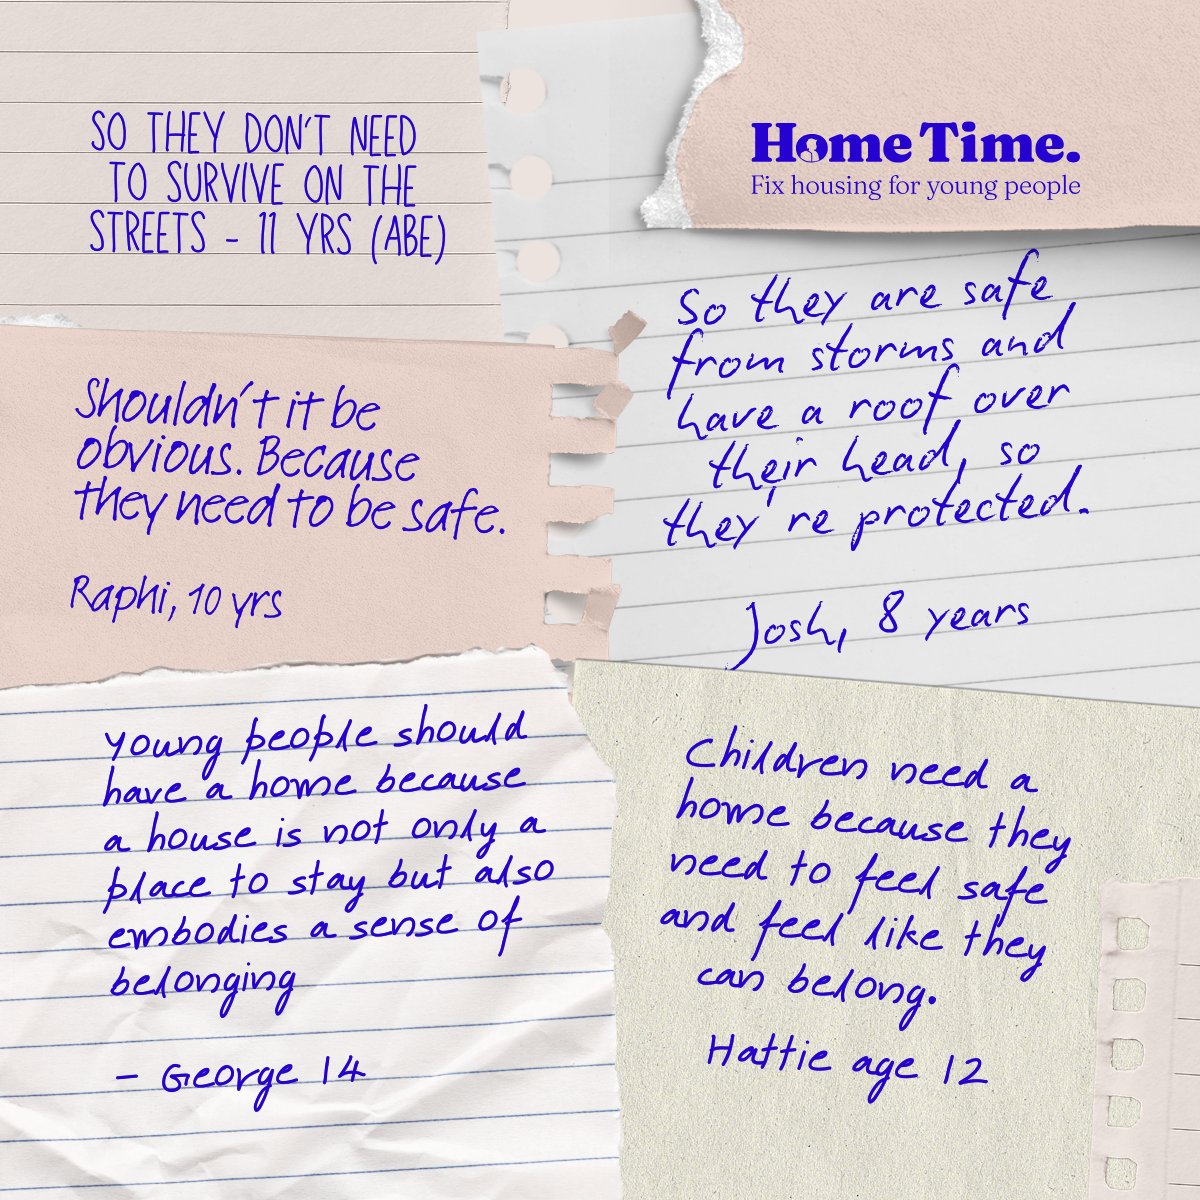 SO THEY DON'T NEED
TO SURVIVE ON THE
STREETS - 11 YRS (ABE)
Home Time.
Fix housing for young people
So they are safe
from storms and
have a roof over
their head, so
they're protected.
Josh, 8 years
Shouldn't it be
obvious. Because
they need to be safe.
Raphi, 10 yrs
Young people should
have a home because
a house is not only a
place to stay but also
embodies a sense of
belonging
- George 14
Children need a
home because they
need to feel safe
and feel like they
can belong.
Hattie age 12